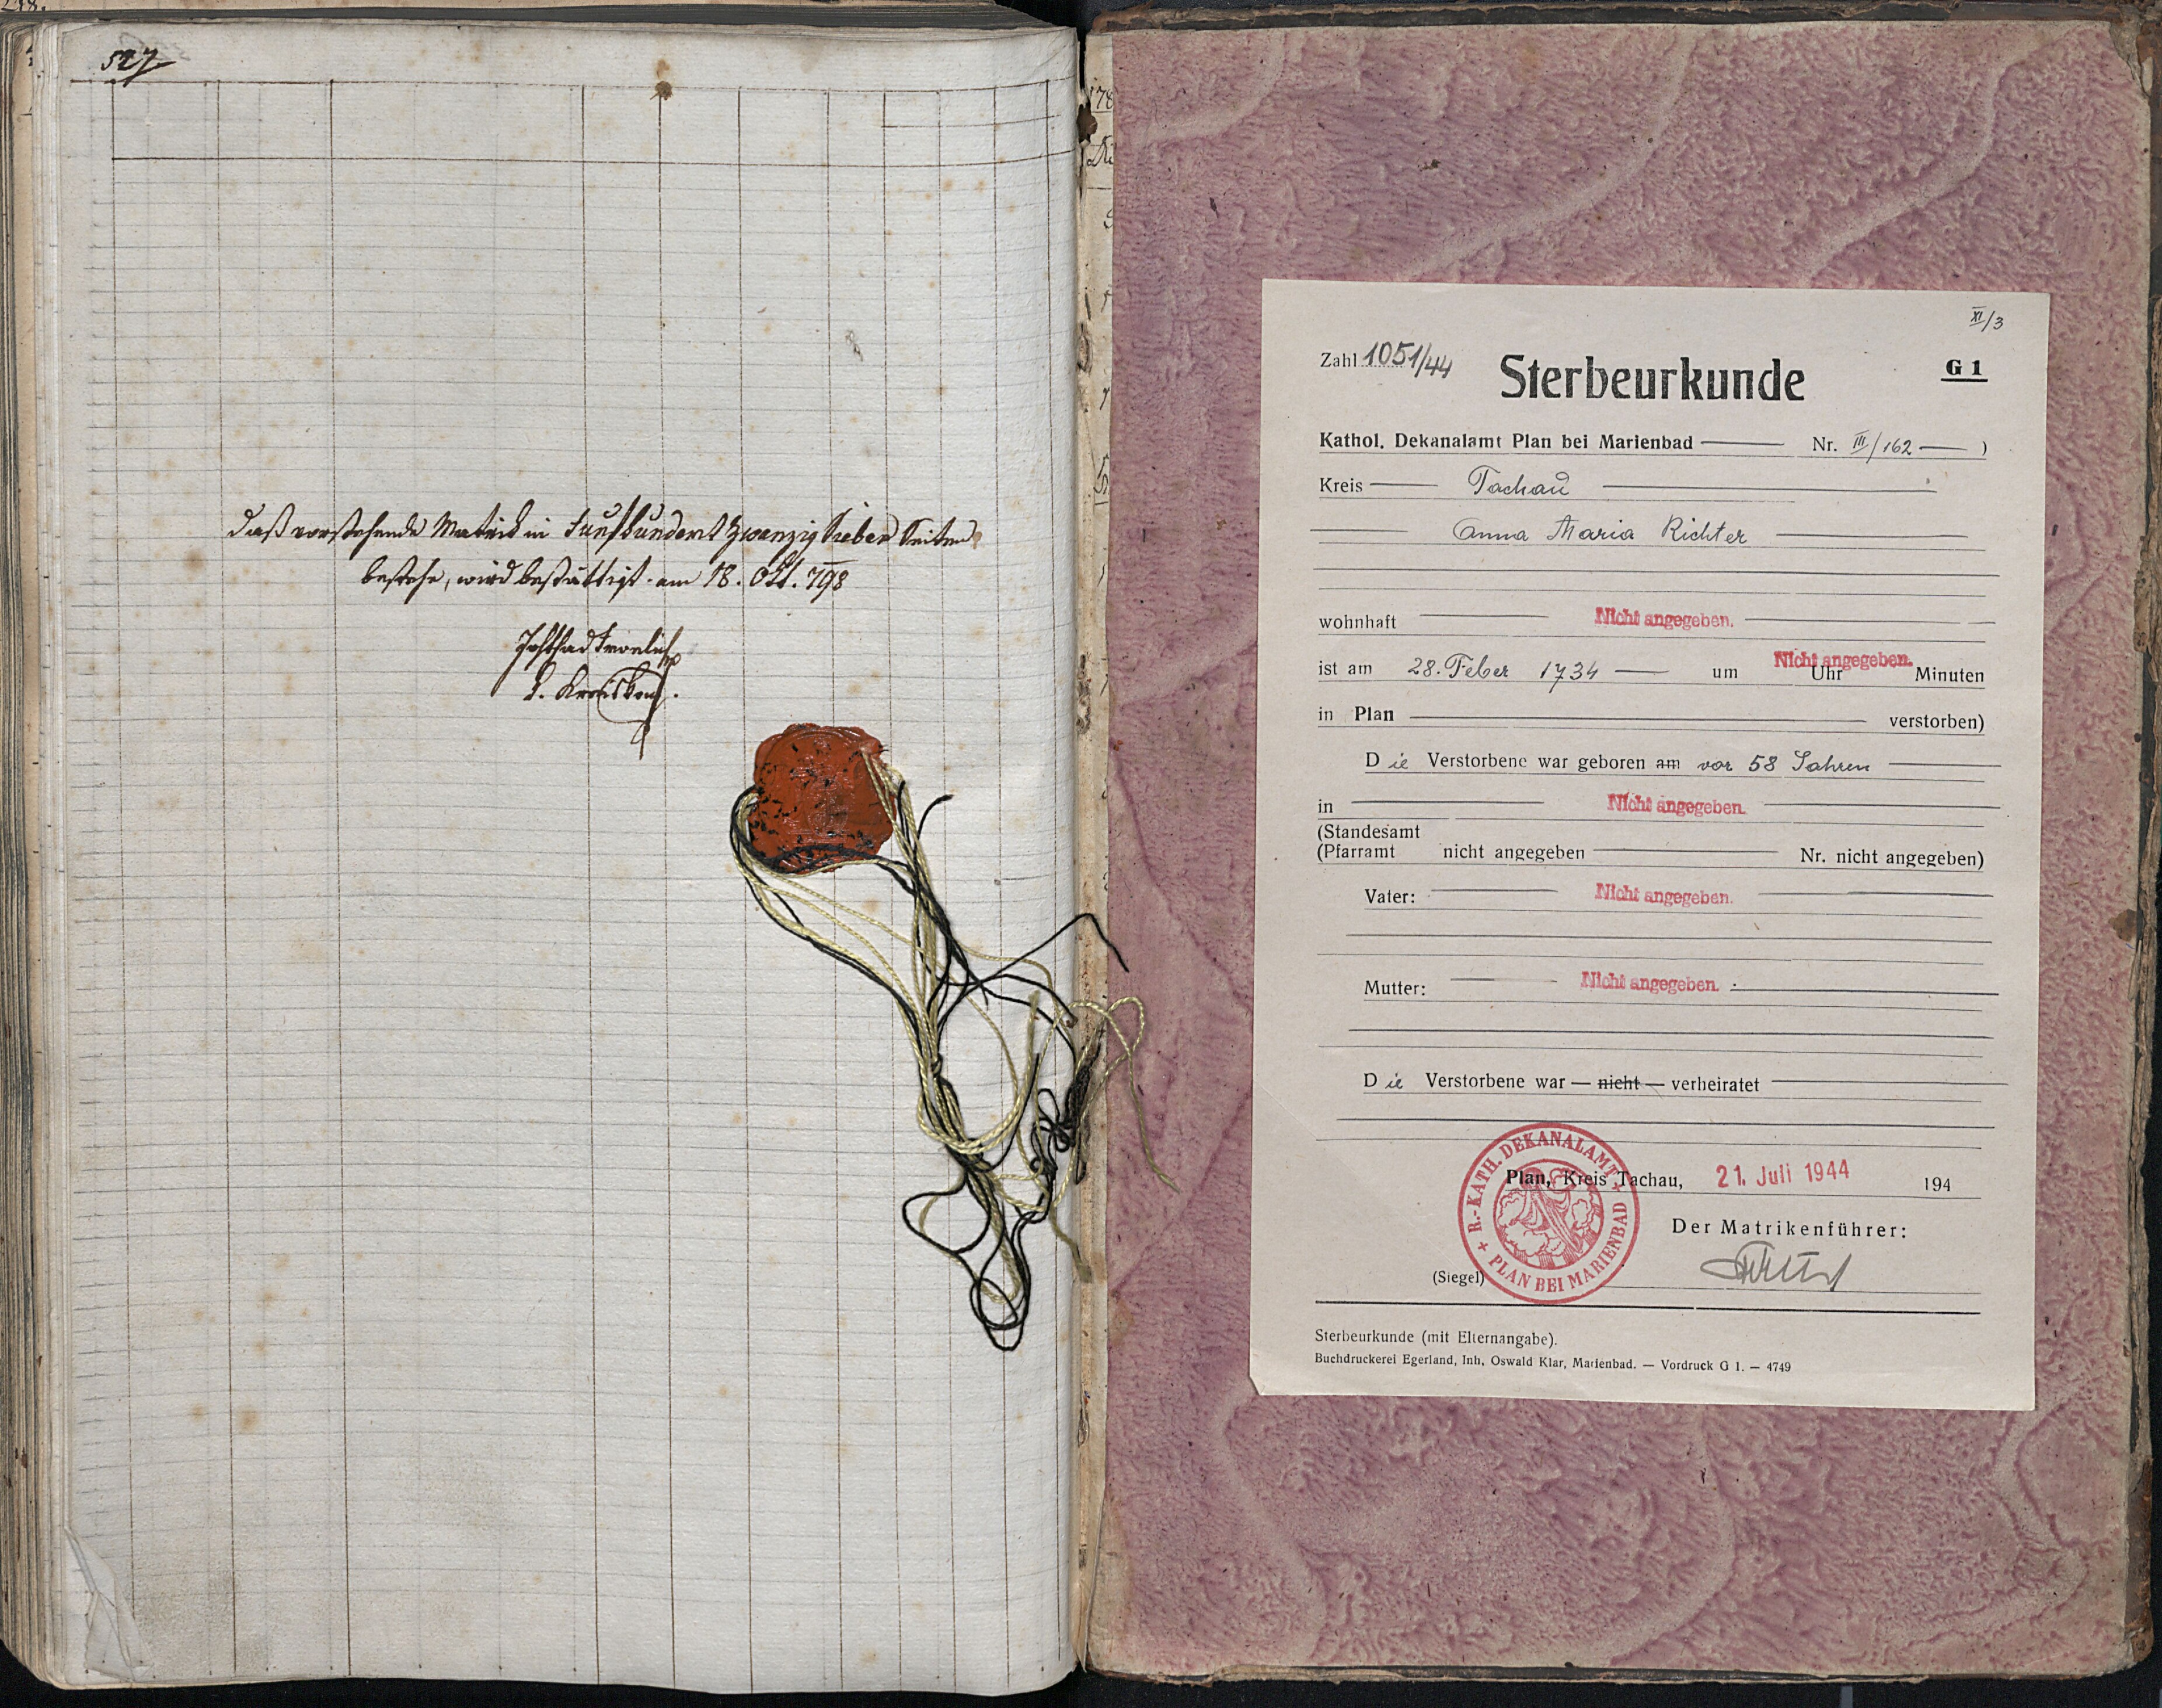 527
daß vorstehende Matrick in Fünfhundert zwanzig sieben Seiten
bestehe, wird bestättigt. am 18. Okt. 798
XI/3
Zahl 1051/44
Sterbeurkunde
G 1
Kathol. Dekanalamt Plan bei Marienbad — Nr. III/162 — )
Kreis — Tachau —
— Anna Maria Richter —
wohnhaft — Nicht angegeben. —
ist am 28. Feber 1734 — um Nicht angegeben. Uhr Minuten
in Plan — verstorben)
Die Verstorbene war geboren am vor 58 Jahren —
in — Nicht angegeben. —
(Standesamt
(Pfarramt nicht angegeben — Nr. nicht angegeben)
Vater: — Nicht angegeben. —
Mutter: — Nicht angegeben. —
Die Verstorbene war — nicht — verheiratet —
R.-KATH. DEKANALAMT + PLAN BEI MARIENBAD +
Plan, Kreis Tachau, 21. Juli 1944 194
Der Matrikenführer:
(Siegel)
Sterbeurkunde (mit Elternangabe).
Buchdruckerei Egerland, Inh. Oswald Klar, Marienbad. — Vordruck G 1. — 4749